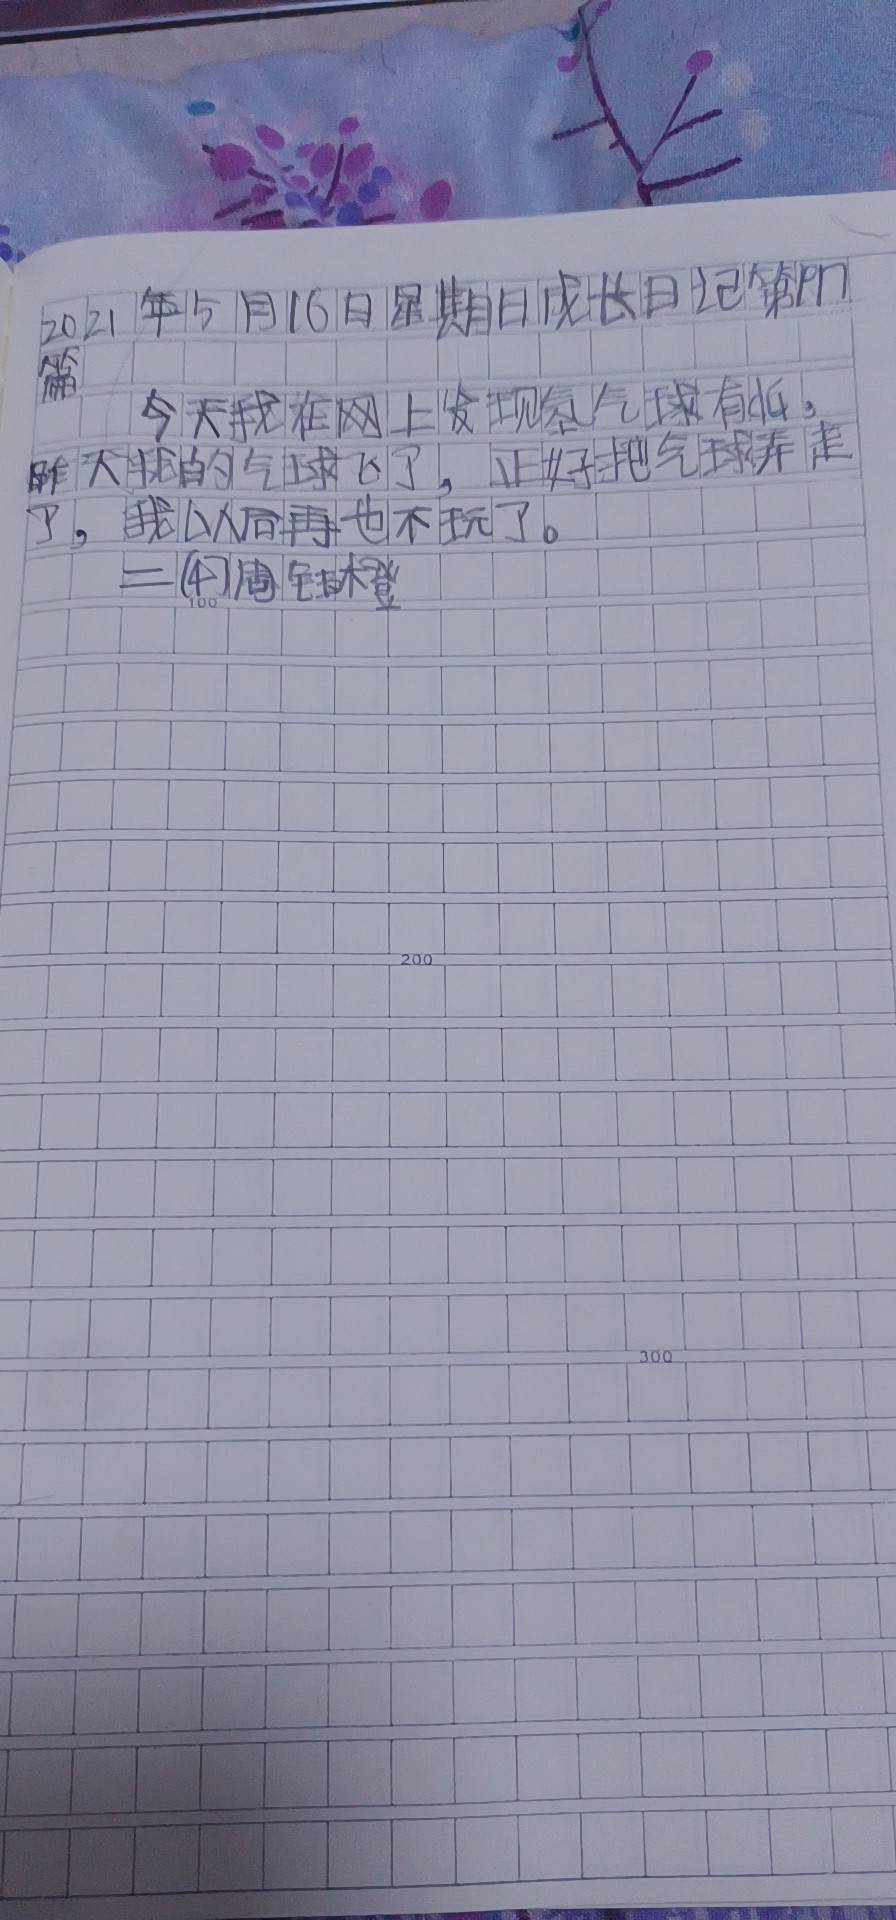 2021年5月16日星期日成长日记第
篇
今天我在网上发现氢气球有
昨天我的气球飞了，正好把气球弄走
了，我以后再也不玩了。
二(4)周钰
100
200
300